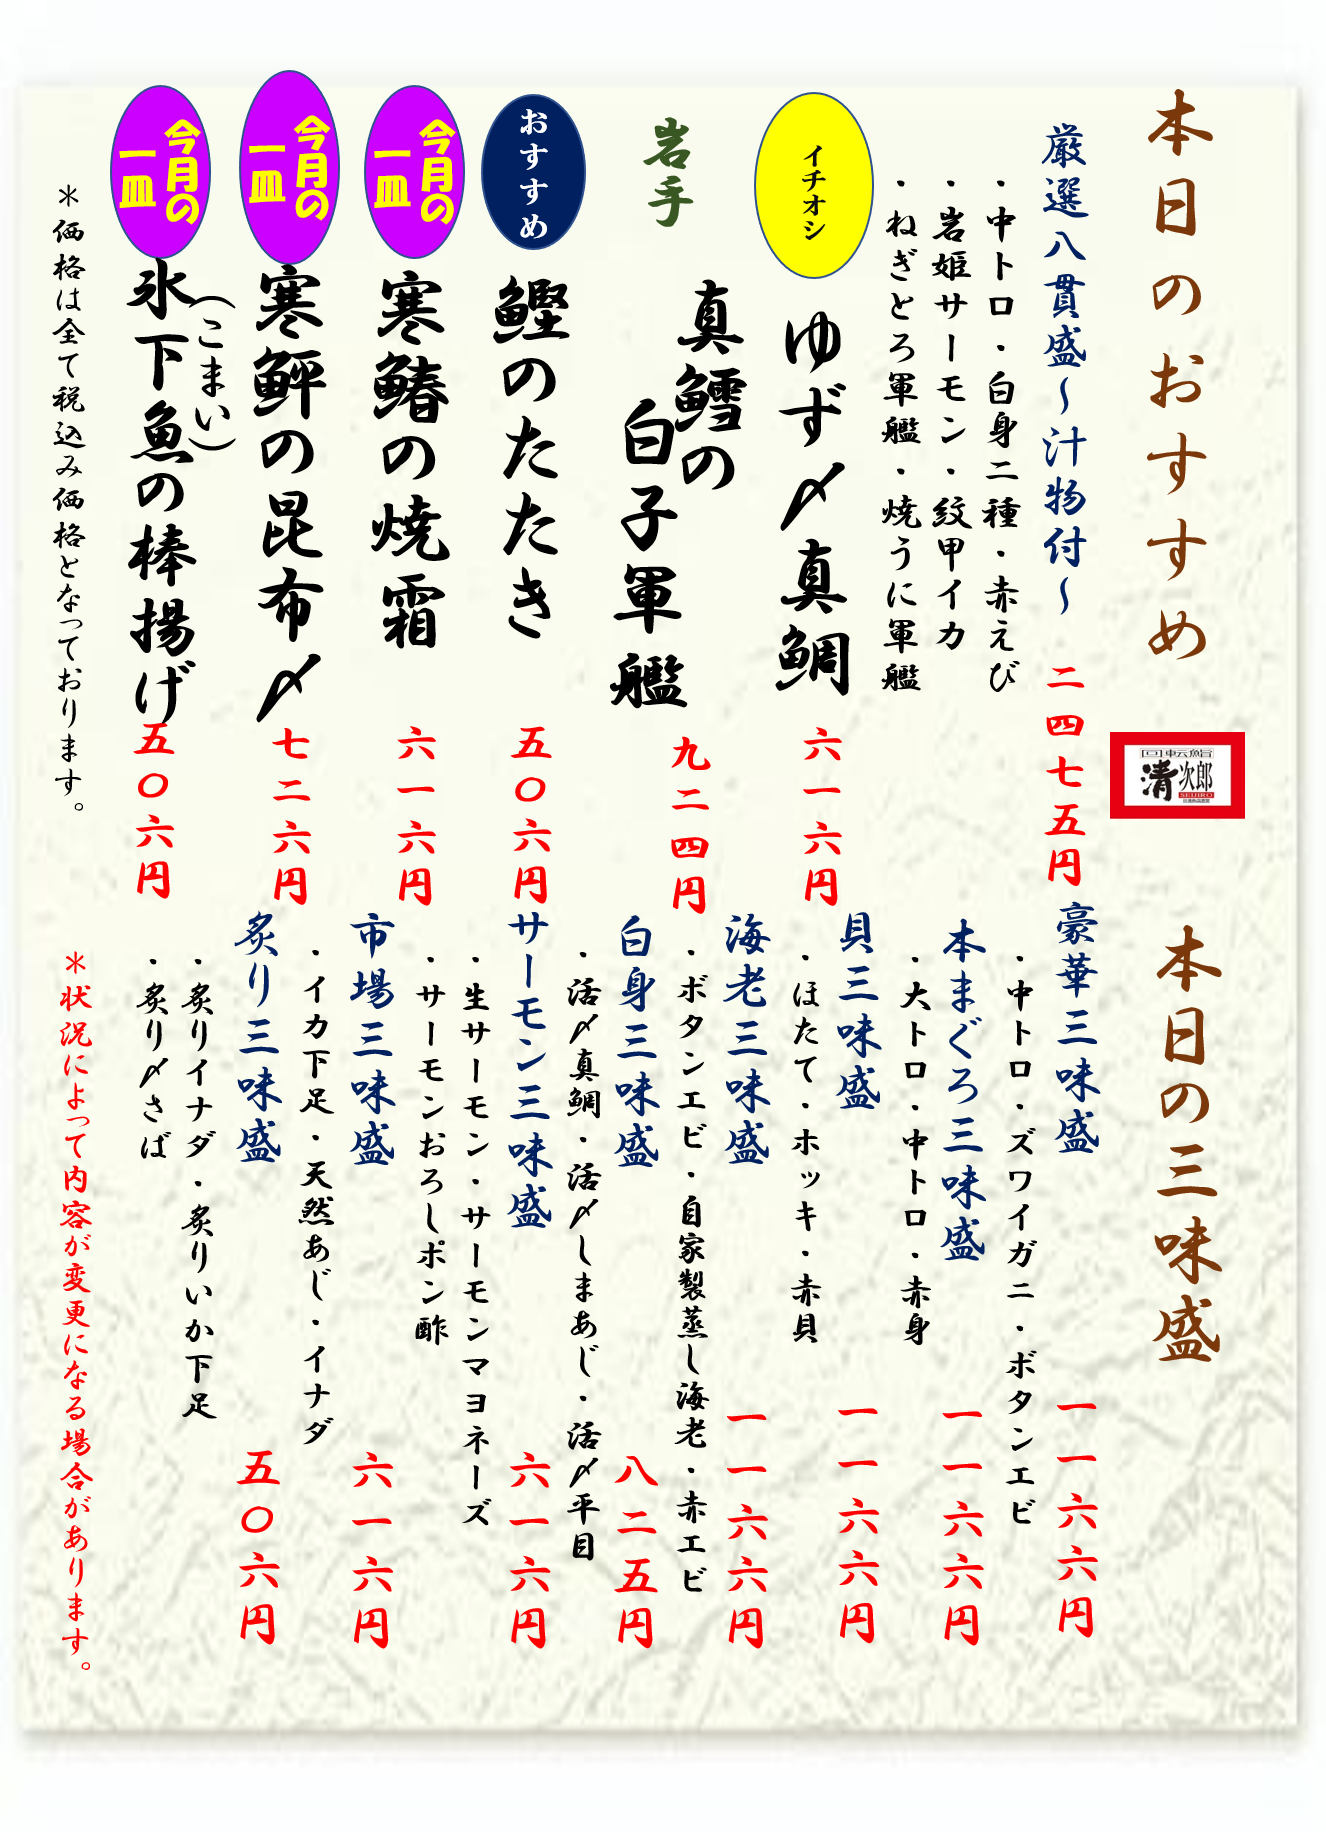 本日のおすすめ
厳選八貫盛~汁物付~ 二四七五円
・中トロ・白身二種・赤えび
・岩姫サーモン・紋甲イカ
・ねぎとろ軍艦・焼うに軍艦
イチオシ
ゆず〆真鯛 六一六円
岩手
真鱈の
白子軍艦 九二四円
おすすめ
鰹のたたき 五〇六円
今月の
一皿
寒鰆の焼霜 六一六円
今月の
一皿
寒鮃の昆布〆 七二六円
今月の
一皿
(こまい)
氷下魚の棒揚げ 五〇六円
*価格は全て税込み価格となっております。
回転鮨
清次郎
SEIJIRO
本日の三味盛
豪華三味盛 一一六六円
・中トロ・ズワイガニ・ボタンエビ
本まぐろ三味盛 一一六六円
・大トロ・中トロ・赤身
貝三味盛 一一六六円
・ほたて・ホッキ・赤貝
海老三味盛 一一六六円
・ボタンエビ・自家製蒸し海老・赤エビ
白身三味盛 八二五円
・活〆真鯛・活〆しまあじ・活〆平目
サーモン三味盛 六一六円
・生サーモン・サーモンマヨネーズ
・サーモンおろしポン酢
市場三味盛 六一六円
・イカ下足・天然あじ・イナダ
炙り三味盛 五〇六円
・炙りイナダ・炙りいか下足
・炙り〆さば
*状況によって内容が変更になる場合があります。